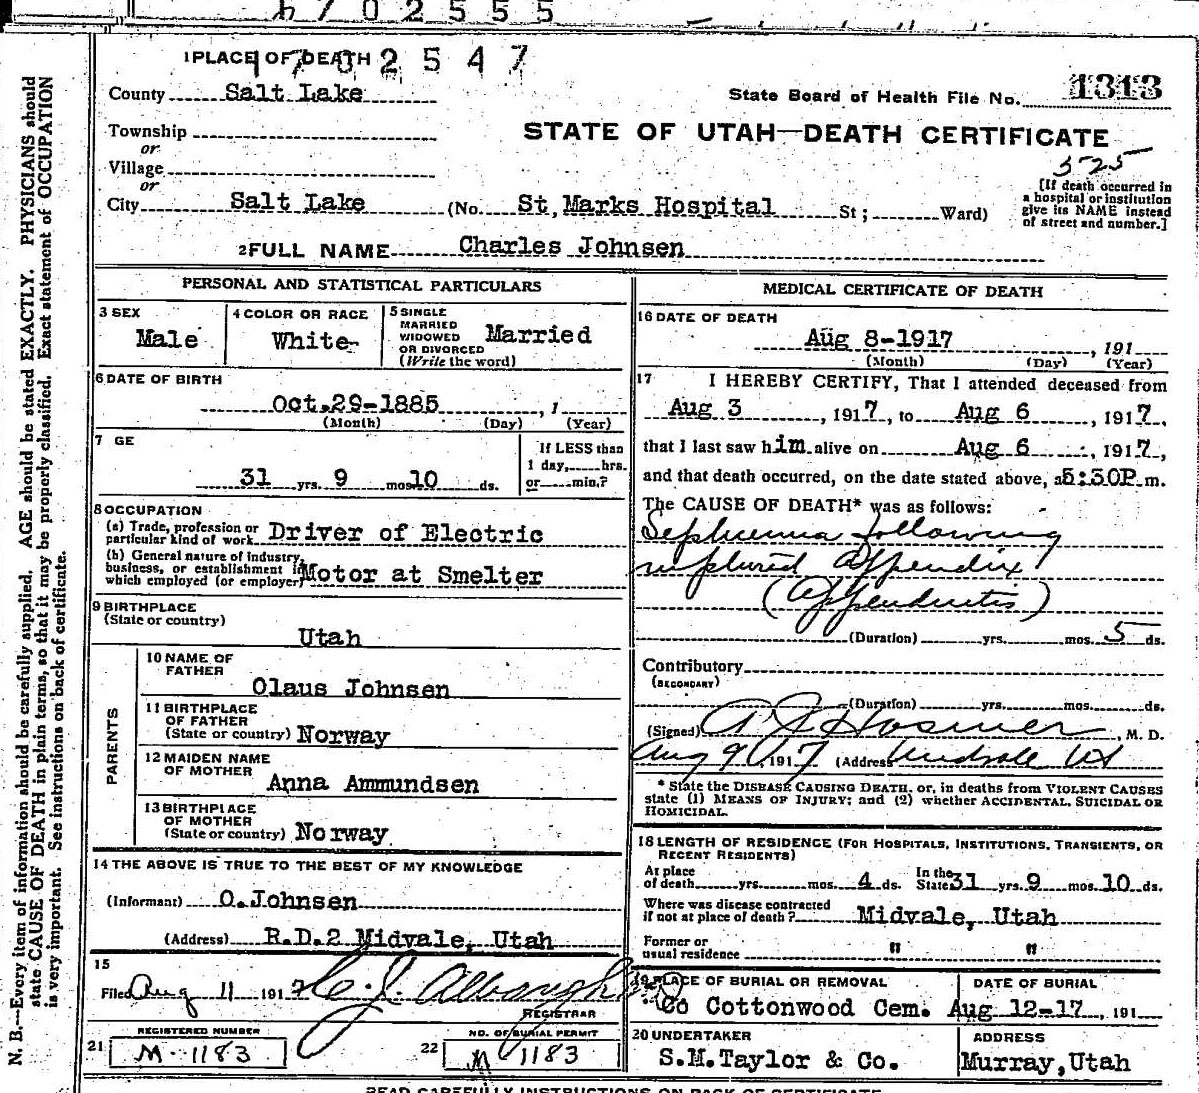 1702555
1 PLACE OF DEATH 1702547
County Salt Lake
State Board of Health File No. 1313
Township
or
STATE OF UTAH—DEATH CERTIFICATE
Village
or
525
[If death occurred in a hospital or institution give its NAME instead of street and number.]
City Salt Lake (No. St, Marks Hospital St; Ward)
2 FULL NAME Charles Johnsen
PERSONAL AND STATISTICAL PARTICULARS
3 SEX
Male
4 COLOR OR RACE
White
5 SINGLE
MARRIED
WIDOWED
OR DIVORCED
(Write the word)
Married
6 DATE OF BIRTH
Oct.29-1885, 1
(Month) (Day) (Year)
7 GE
31 yrs. 9 mos 10 ds.
If LESS than
1 day, hrs.
or min.?
8 OCCUPATION
(a) Trade, profession or
particular kind of work Driver of Electric
(b) General nature of industry,
business, or establishment in
which employed (or employer) Motor at Smelter
9 BIRTHPLACE
(State or country)
Utah
PARENTS
10 NAME OF
FATHER
Olaus Johnsen
11 BIRTHPLACE
OF FATHER
(State or country) Norway
12 MAIDEN NAME
OF MOTHER
Anna Ammundsen
13 BIRTHPLACE
OF MOTHER
(State or country) Norway
14 THE ABOVE IS TRUE TO THE BEST OF MY KNOWLEDGE
(Informant) O.Johnsen
(Address) R.D.2 Midvale, Utah
15
Filed Aug 11 1917 C. J. Albaugh
REGISTRAR
REGISTERED NUMBER
21 M-1183
NO. OF BURIAL PERMIT
22 M 1183
MEDICAL CERTIFICATE OF DEATH
16 DATE OF DEATH
Aug 8-1917, 191
(Month) (Day) (Year)
17 I HEREBY CERTIFY, That I attended deceased from
Aug 3, 1917, to Aug 6, 1917,
that I last saw him alive on Aug 6, 1917,
and that death occurred, on the date stated above, a 5:30P m.
The CAUSE OF DEATH* was as follows:
Septicemia following
ruptured appendix
(Appendicitis)
(Duration) yrs. mos. 5 ds.
Contributory
(SECONDARY)
(Duration) yrs. mos. ds.
(Signed) Hosmer, M. D.
Aug 9 1917 (Address Midvale Ut
* State the DISEASE CAUSING DEATH, or, in deaths from VIOLENT CAUSES
state (1) MEANS OF INJURY; and (2) whether ACCIDENTAL, SUICIDAL OR
HOMICIDAL.
18 LENGTH OF RESIDENCE (FOR HOSPITALS, INSTITUTIONS, TRANSIENTS, OR
RECENT RESIDENTS)
At place
of death yrs. mos. 4 ds.
In the
State 31 yrs. 9 mos. 10 ds.
Where was disease contracted
if not at place of death? Midvale, Utah
Former or
usual residence " "
19 PLACE OF BURIAL OR REMOVAL
Co Cottonwood Cem.
DATE OF BURIAL
Aug 12-17, 191
20 UNDERTAKER
S.M.Taylor & Co.
ADDRESS
Murray,Utah
READ CAREFULLY INSTRUCTIONS ON BACK OF CERTIFICATE
N. B.—Every item of information should be carefully supplied. AGE should be stated EXACTLY. PHYSICIANS should
state CAUSE OF DEATH in plain terms, so that it may be properly classified. Exact statement of OCCUPATION
is very important. See instructions on back of certificate.